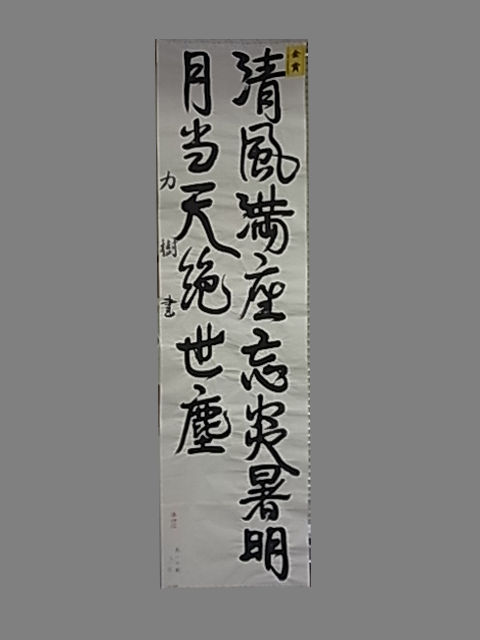 清風満座忘炎暑明
月当天絶世塵
力樹書
金賞